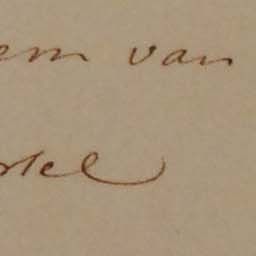 em van
rkel